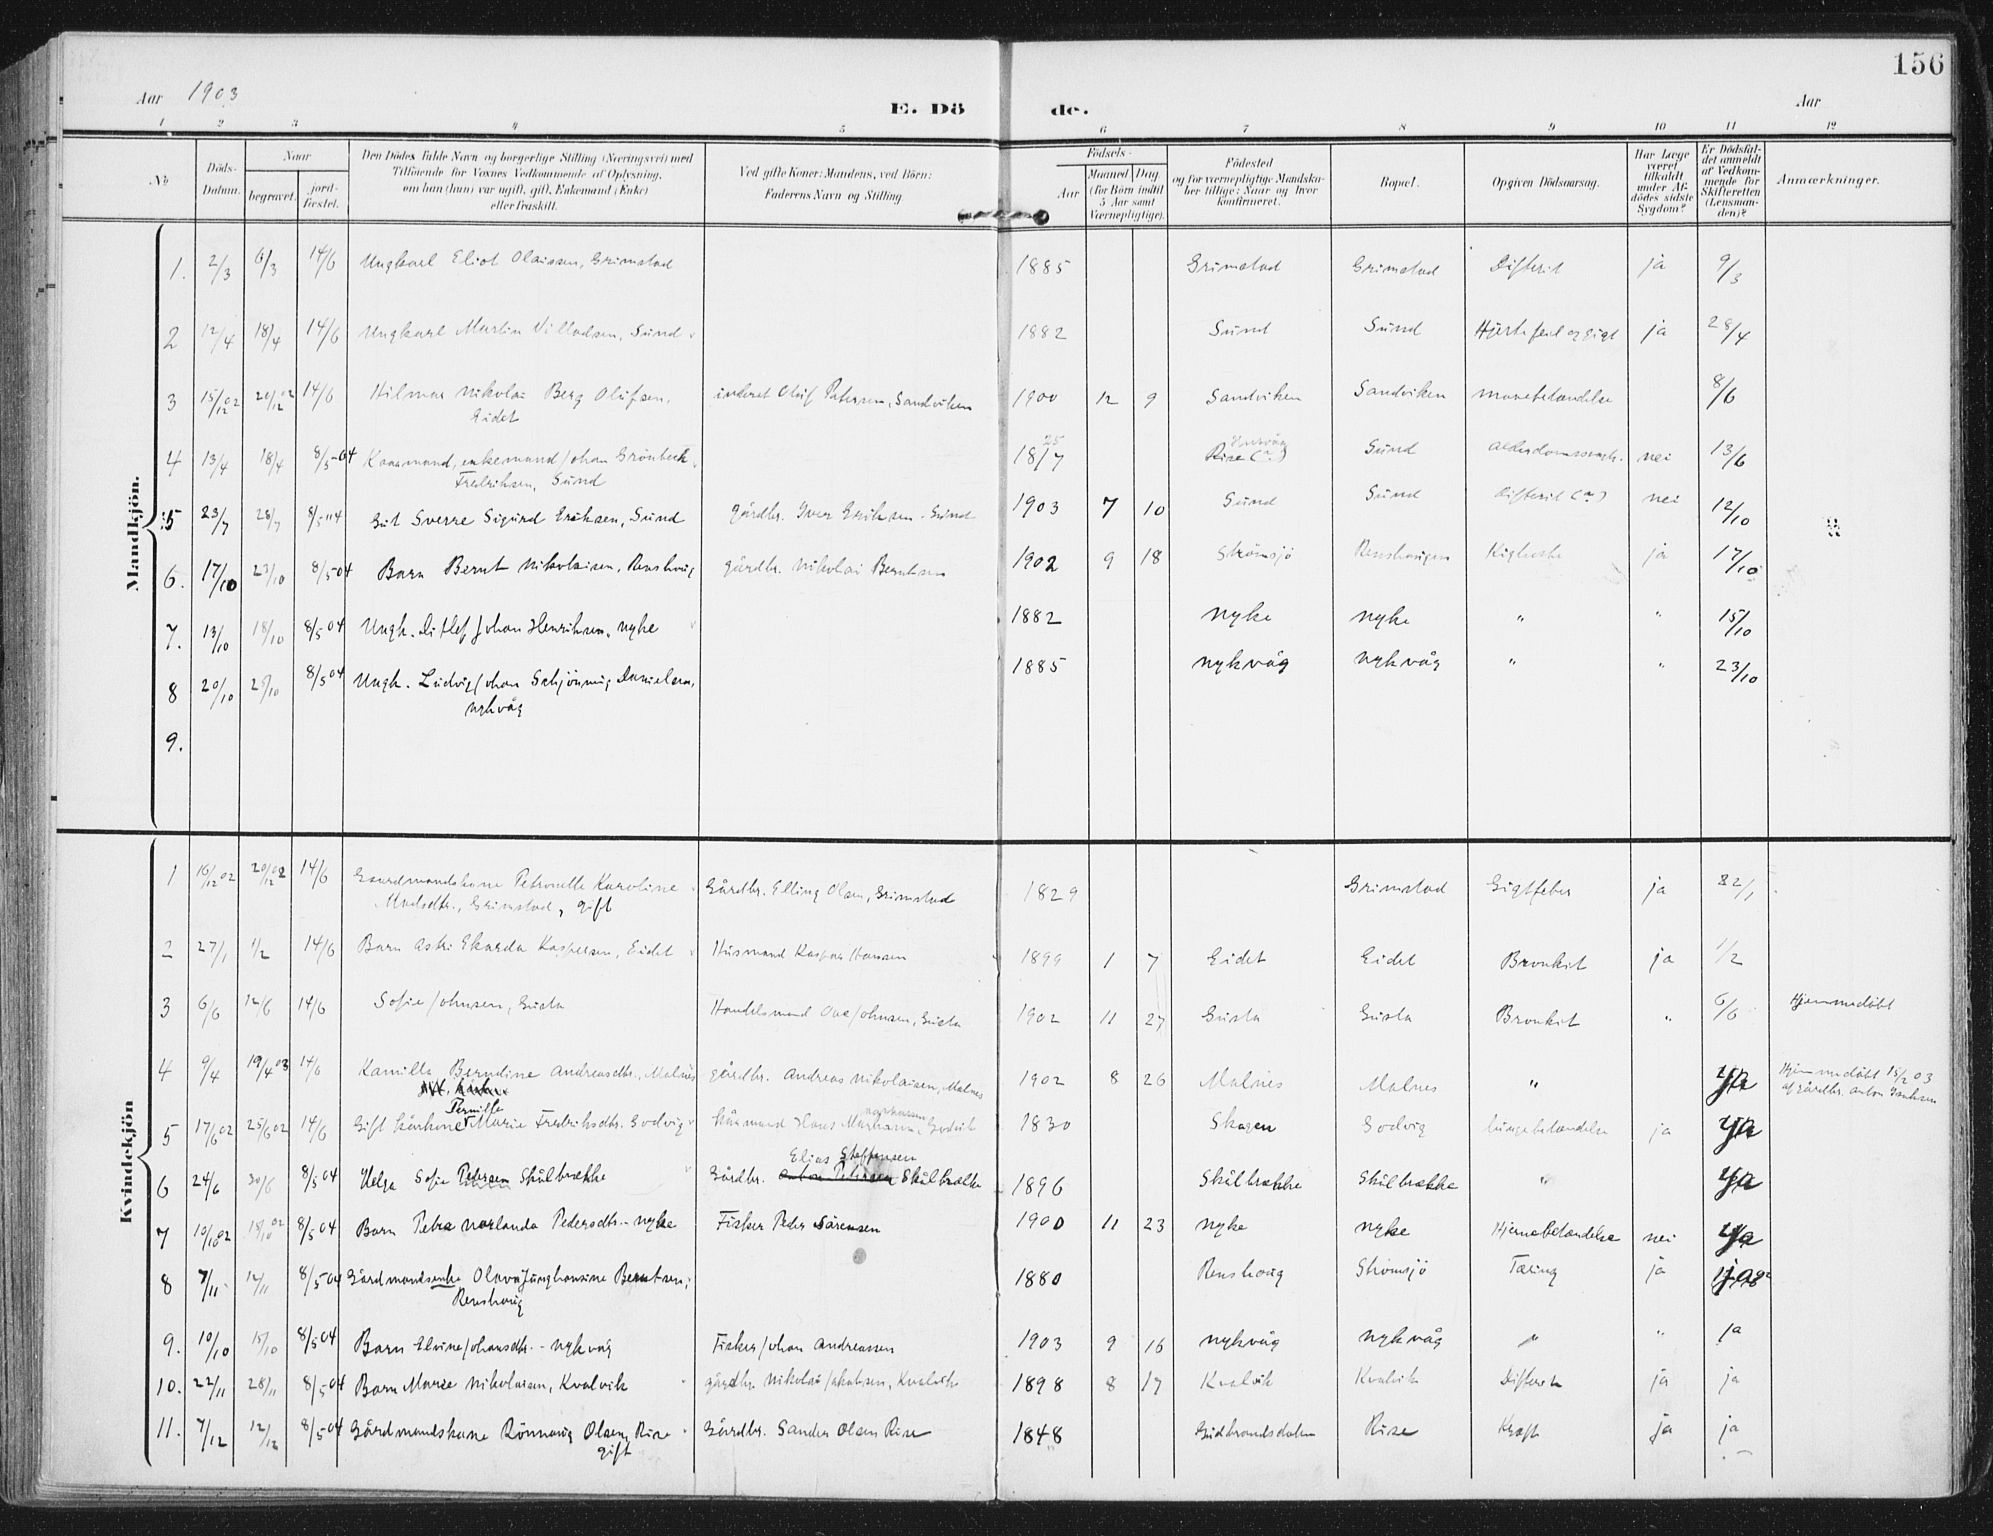 156
Aar 1903
E. Dö de.
Aar
1 2 3 4 5 6 7 8 9 10 11 12
No.
Döds-Datum.
Naar
begravet.
jord-fæstet.
Den Dödes fulde Navn og borgerlige Stilling (Næringsvei) med
Tilföiende for Voxnes Vedkommende af Oplysning,
om han (hun) var ugift, gift, Enkemand (Enke)
eller fraskilt.
Ved gifte Koner: Mandens, ved Börn:
Faderens Navn og Stilling
Födsels-
Aar
Maaned Dag
(for Börn indtil
5 Aar samt
Værnepligtige).
Födested
og for værnepligtige Mandska-
ber tillige: Naar og hvor
konfirmeret.
Bopæl.
Opgiven Dödsaarsag.
Har Læge
været
tilkaldt
under Af-
dödes sidste
Sygdom?
Er Dödsfal-
det anmeldt
af Vedkom-
mende for
Skifteretten
(Lensman-
den)?
Anmærkninger.
Mandkjön.
1. 2/3 6/3 14/6 Ungkarl Eliot Olaissen, Grimstad 1885 Grimstad Grimstad Difterit ja 9/3
2 12/4 18/4 14/6 Ungkarl Martin Villadsen, Sund 1882 Sund Sund Hjertefeil og Gigt ja 28/4
3 15/12 02 20/12 02 14/6 Hilmar Nikolai Berg Olufsen, inderst Oluf Petersen, Sandviken 1900 12 9 Sandviken Sandviken Mavebetændelse 8/6
Eidet
4 13/4 18/4 8/5-04 Kaarmand, enkemand Johan Grönbech 18 25 Sund nei 13/6
Fredriksen, Sund
5 23/7 28/7 8/5 04 Gut Sverre Sigurd Eriksen, Sund gårdbr. Iver Eriksen - Sund 1903 7 10 Sund Sund Difterit (?) nei 12/10
6. 17/10 8/5 04 Barn Bernt Nikolaisen, Renshaug gårdbr. Nikolai Berntsen 1902 9 18 Strömsjö Kighoste ja 17/10
7. 13/10 18/10 8/5 04 Ungk. Ditlef Johan Henriksen, Nyke 1882 Nyke Nyke " " 15/10
8 20/10 25/10 8/5 04 Ungk. Ludvig Johan Danielsen, 1885 Nykvåg Nykvåg " " 23/10
Nykvåg
9.
Kvindekjön
1 16/12 02 20/12 02 14/6 Gaardmandskone Petronelle Karoline Gårdbr. Elling Olsen, Grimstad 1829 Grimstad Gigtfeber ja
Madsdtr., Grimstad, gift
2 27/1 1/2 14/6 Barn Astri Ekarda Kaspersen, Eidet Husmand Kaspar Hansen 1899 1 7 Eidet Eidet Bronkit ja 1/2
3 6/6 12/6 14/6 Sofie Johnsen, Guvta Handelsmand Ove Johnsen, Guvta 1902 11 27 Guvta Guvta Bronkit " 6/6 Hjemmedöbt
4 9/4 19/4 03 14/6 Kamilla Berndine Andreasdtr., Malnes gårdbr. Andreas Nikolaisen, Malnes 1902 8 26 Malnes Malnes " ja Hjemmedöbt 15/2 03
af gårdbr. Anton
Pernille
5 17/6 02 25/6 02 14/6 Gift Marie Fredriksdtr. Godvig Hans 1830 Skagen Godvig lungebetændelse ja ja
Elias Steffensen
6 24/6 30/6 8/5 04 Helga Sofie Pedersen Skulbrække Gårdbr. Anton Petersen Skulbrække 1896 Skulbrække Skulbrække " ja
7 10/10 02 18/10 02 8/5 04 Barn Petra Norlanda Pedersdtr. - Nyke Fisker Peder Sörensen 1900 11 23 Nyke Nyke Hjernebetændelse nei ja
8 7/11 12/11 8/5 04 Gårdmandsenke Olava Berntsen, 1880 Renshaug Strömsjö Tæring ja ja
Renshaug
9. 10/10 15/10 8/5 04 Barn Elvine Johansdtr. - Nykvåg Fisker Johan Andreassen 1903 9 16 Nykvåg Nykvåg " " ja
10. 22/11 28/11 8/5 04 Barn Marie Nikolaisen, Kvalvik gårdbr. Nikolai Jakobsen, Kvalvik 1898 8 17 Kvalvik Kvalvik Difterit ja ja
11. 7/12 12/12 8/5 04 Gårdmandskone Rönnaug Olsen, Rise Gårdbr. Sander Olsen Rise 1848 Gudbrandsdalen Rise Kræft ja ja
gift